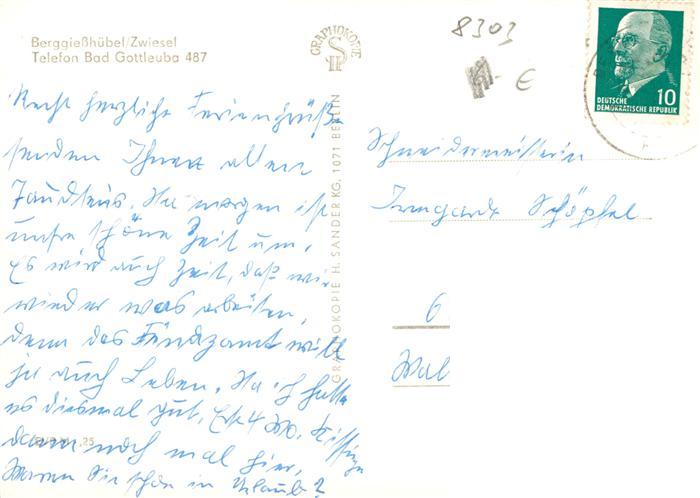 Berggießhübel/Zwiesel
Telefon Bad Gottleuba 487
8303
€
GRAPHOKOPIE
10
DEUTSCHE
DEMOKRATISCHE REPUBLIK
Recht herzliche Feriengrüße
senden Ihnen allen
morgen ist
unsre schöne Zeit um.
Es wird auch Zeit, daß wir
wieder was arbeiten,
denn das Finanzamt will
ja auch Leben. Na ich hatte
es diesmal gut. Erst 4 Wo.
dann noch mal hier.
Waren Sie schon in Urlaub?
GRAPHOKOPIE H. SANDER KG, 1071 BERLIN
Schneidermeisterin
Irmgard Schöpfel
6